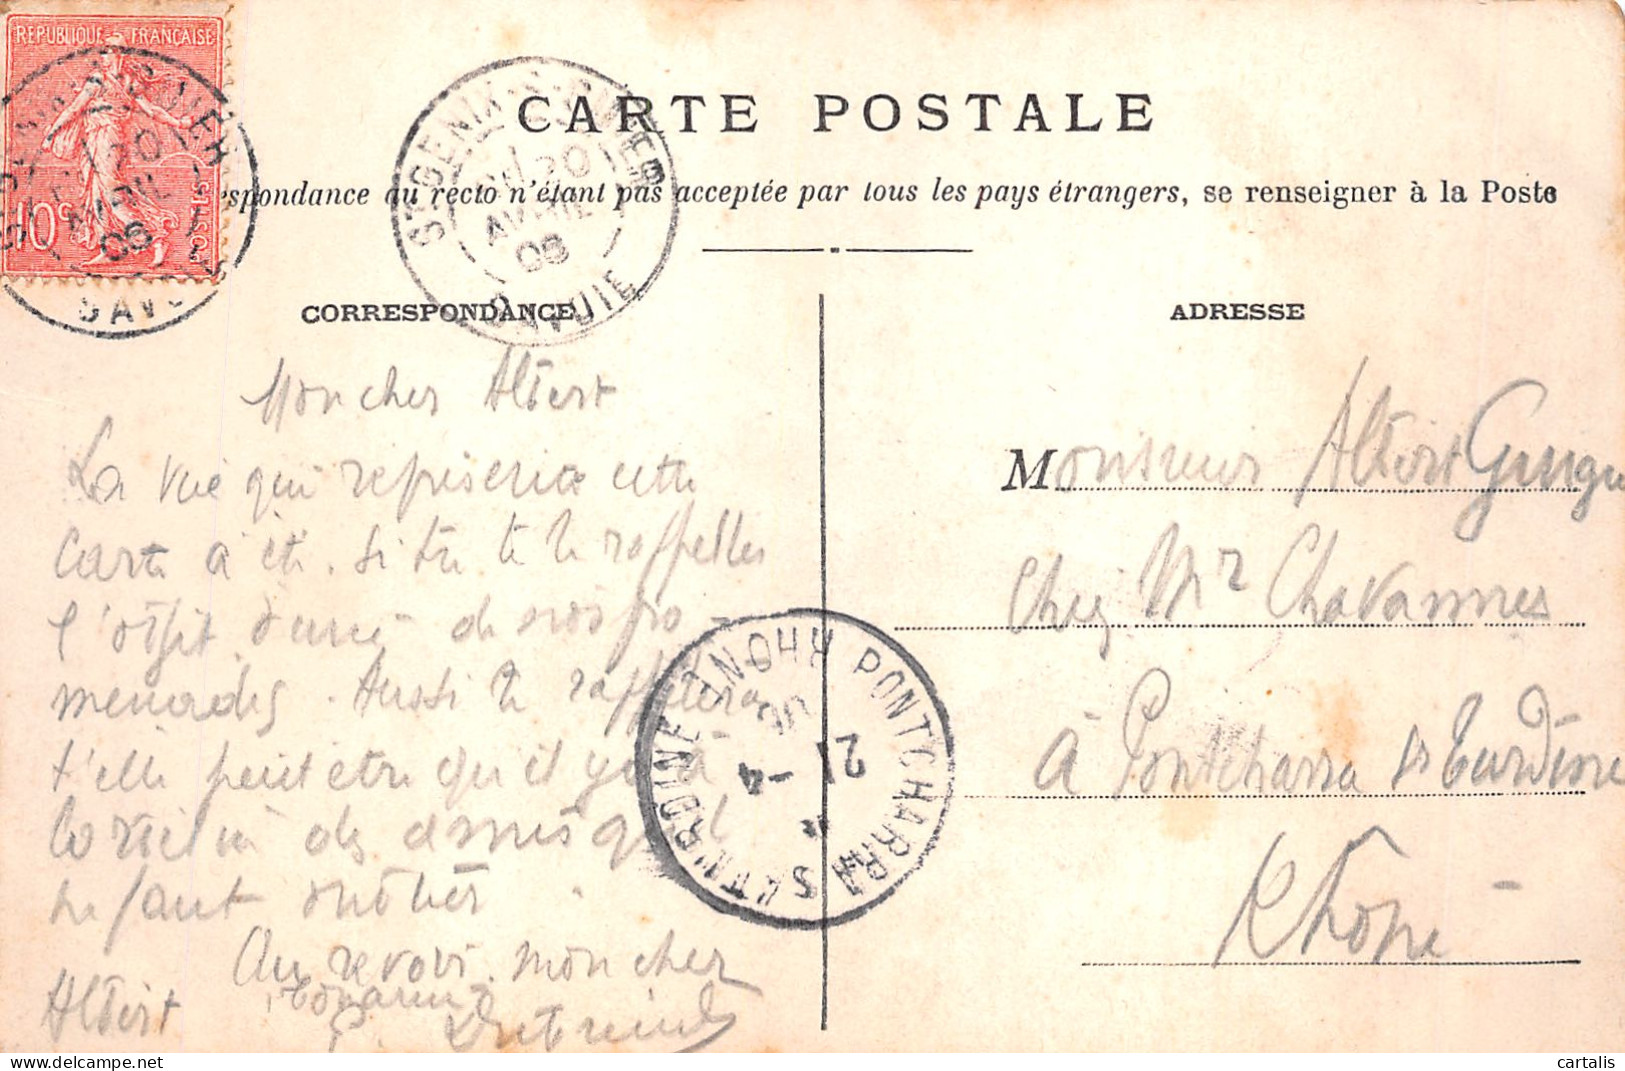 RÉPUBLIQUE FRANÇAISE
10c POSTES
CARTE POSTALE
spondance au recto n'étant pas acceptée par tous les pays étrangers, se renseigner à la Poste
ST GENIX
20
AVRIL
06
SAVOIE
CORRESPONDANCE
Mon cher Albert
La vue qui represente cette
carte a été. Si tu te le rappelles
l'objet d'une de nos pro
menades. Aussi te rappelera
t'elle peut etre qu'il y a à
des amis qu'il
ne faut oublier
Au revoir mon cher
Albert
ADRESSE
Monsieur Albert
Chez Mr Chavannes
à Pontcharra sr Turdine
Rhône
PONTCHARRA S TURDINE RHONE
21 -4
06
cartalis